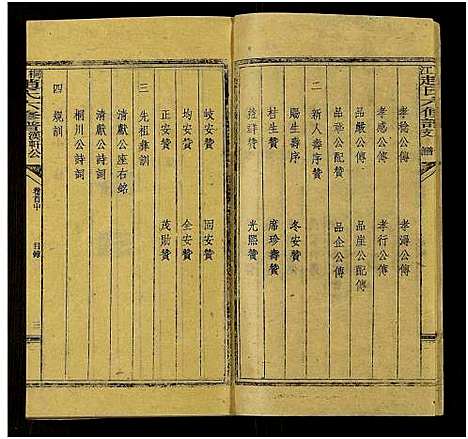 孝德公傳 孝濤公傳
孝感公傳 孝行公傳
品嚴公傳 品崖公配傳
品宗公配贊 品企公傳
二 新人壽序贊
賜生壽序 冬安贊
村生贊 席珍壽贊
光熙贊
岐安贊 固安贊
均安贊 全安贊
正安贊 茂勛贊
三 先祖彝訓
清獻公座右銘
清獻公詩詞
桐川公詩詞
四 規訓
卷首中 目錄 三